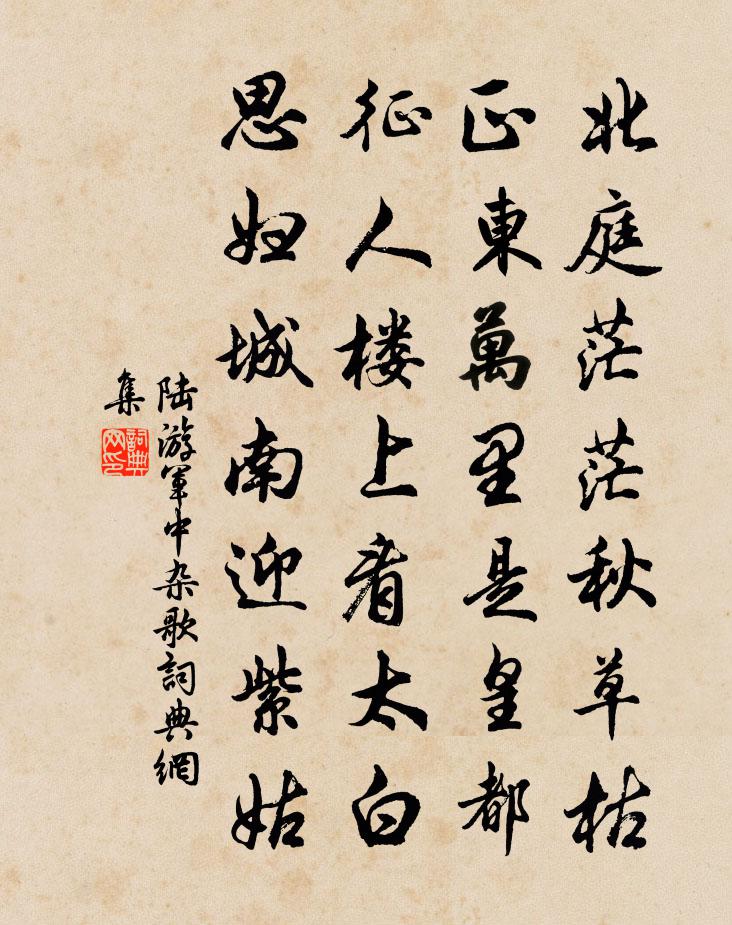 北庭茫茫秋草枯
正東萬里是皇都
征人楼上看太白
思妇城南迎紫姑
陆游军中杂歌詞典網
集
詞典
网印